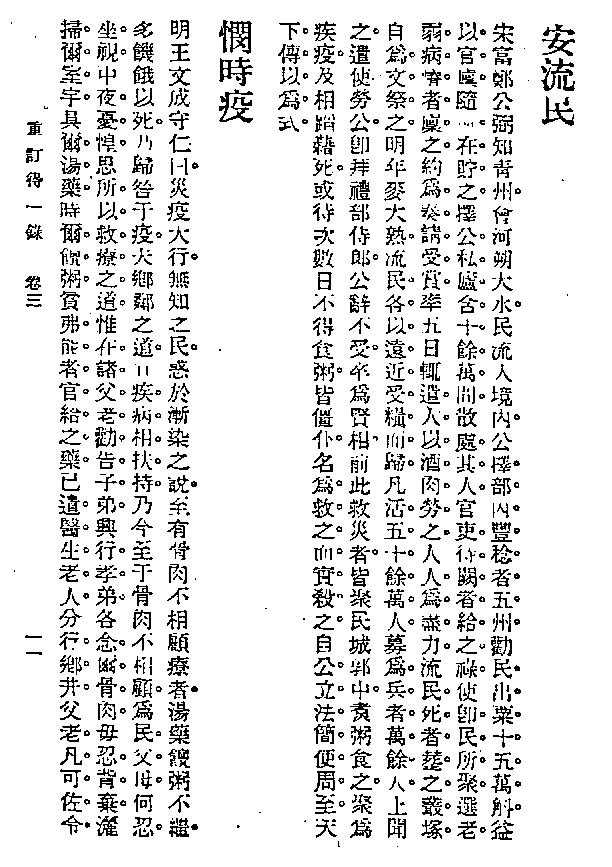 安流民
宋富鄭公弼知青州會河朔大水民流入境內公擇部內豐稔者五州勸民出粟十五萬斛益
以官廩隨所在貯之擇公私廬舍十餘萬間散處其人官吏待闕者給之祿使卽民所聚選老
弱病瘠者廩之約爲奏請受賞率五日輒遣人以酒肉勞之人人爲盡力流民死者塟之叢塚
自爲文祭之明年麥大熟流民各以遠近受糧而歸凡活五十餘萬人募爲兵者萬餘人上聞
之遣使勞公卽拜禮部侍郎公辭不受卒爲賢相前此救災者皆聚民城郭中煑粥食之聚爲
疾疫及相蹈藉死或待次數日不得食粥皆僵仆名爲救之而實殺之自公立法簡便周至天
下傳以爲式
憫時疫
明王文成守仁曰災疫大行無知之民惑於漸染之說至有骨肉不相顧療者湯藥饘粥不繼
多饑餓以死乃歸咎于疫夫鄉鄰之道宜疾病相扶持乃今至于骨肉不相顧爲民父母何忍
坐視中夜憂惶思所以救療之道惟在諸父老勸告子弟興行孝弟各念爾骨肉毋忍背棄灑
掃爾室宇具爾湯藥時爾饘粥貧弗能者官給之藥已遣醫生老人分行鄉井父老凡可佐令
重訂得一錄 卷三 一一